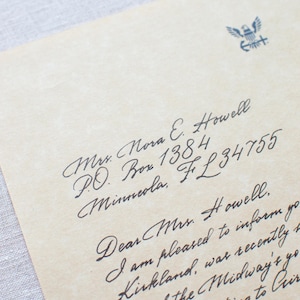 Mrs. Nora E. Howell
P.O. Box 1384
Minneola, FL 34755
Dear Mrs. Howell,
I am pleased to inform yo
Kirkland, was recently s
the Midway's
to